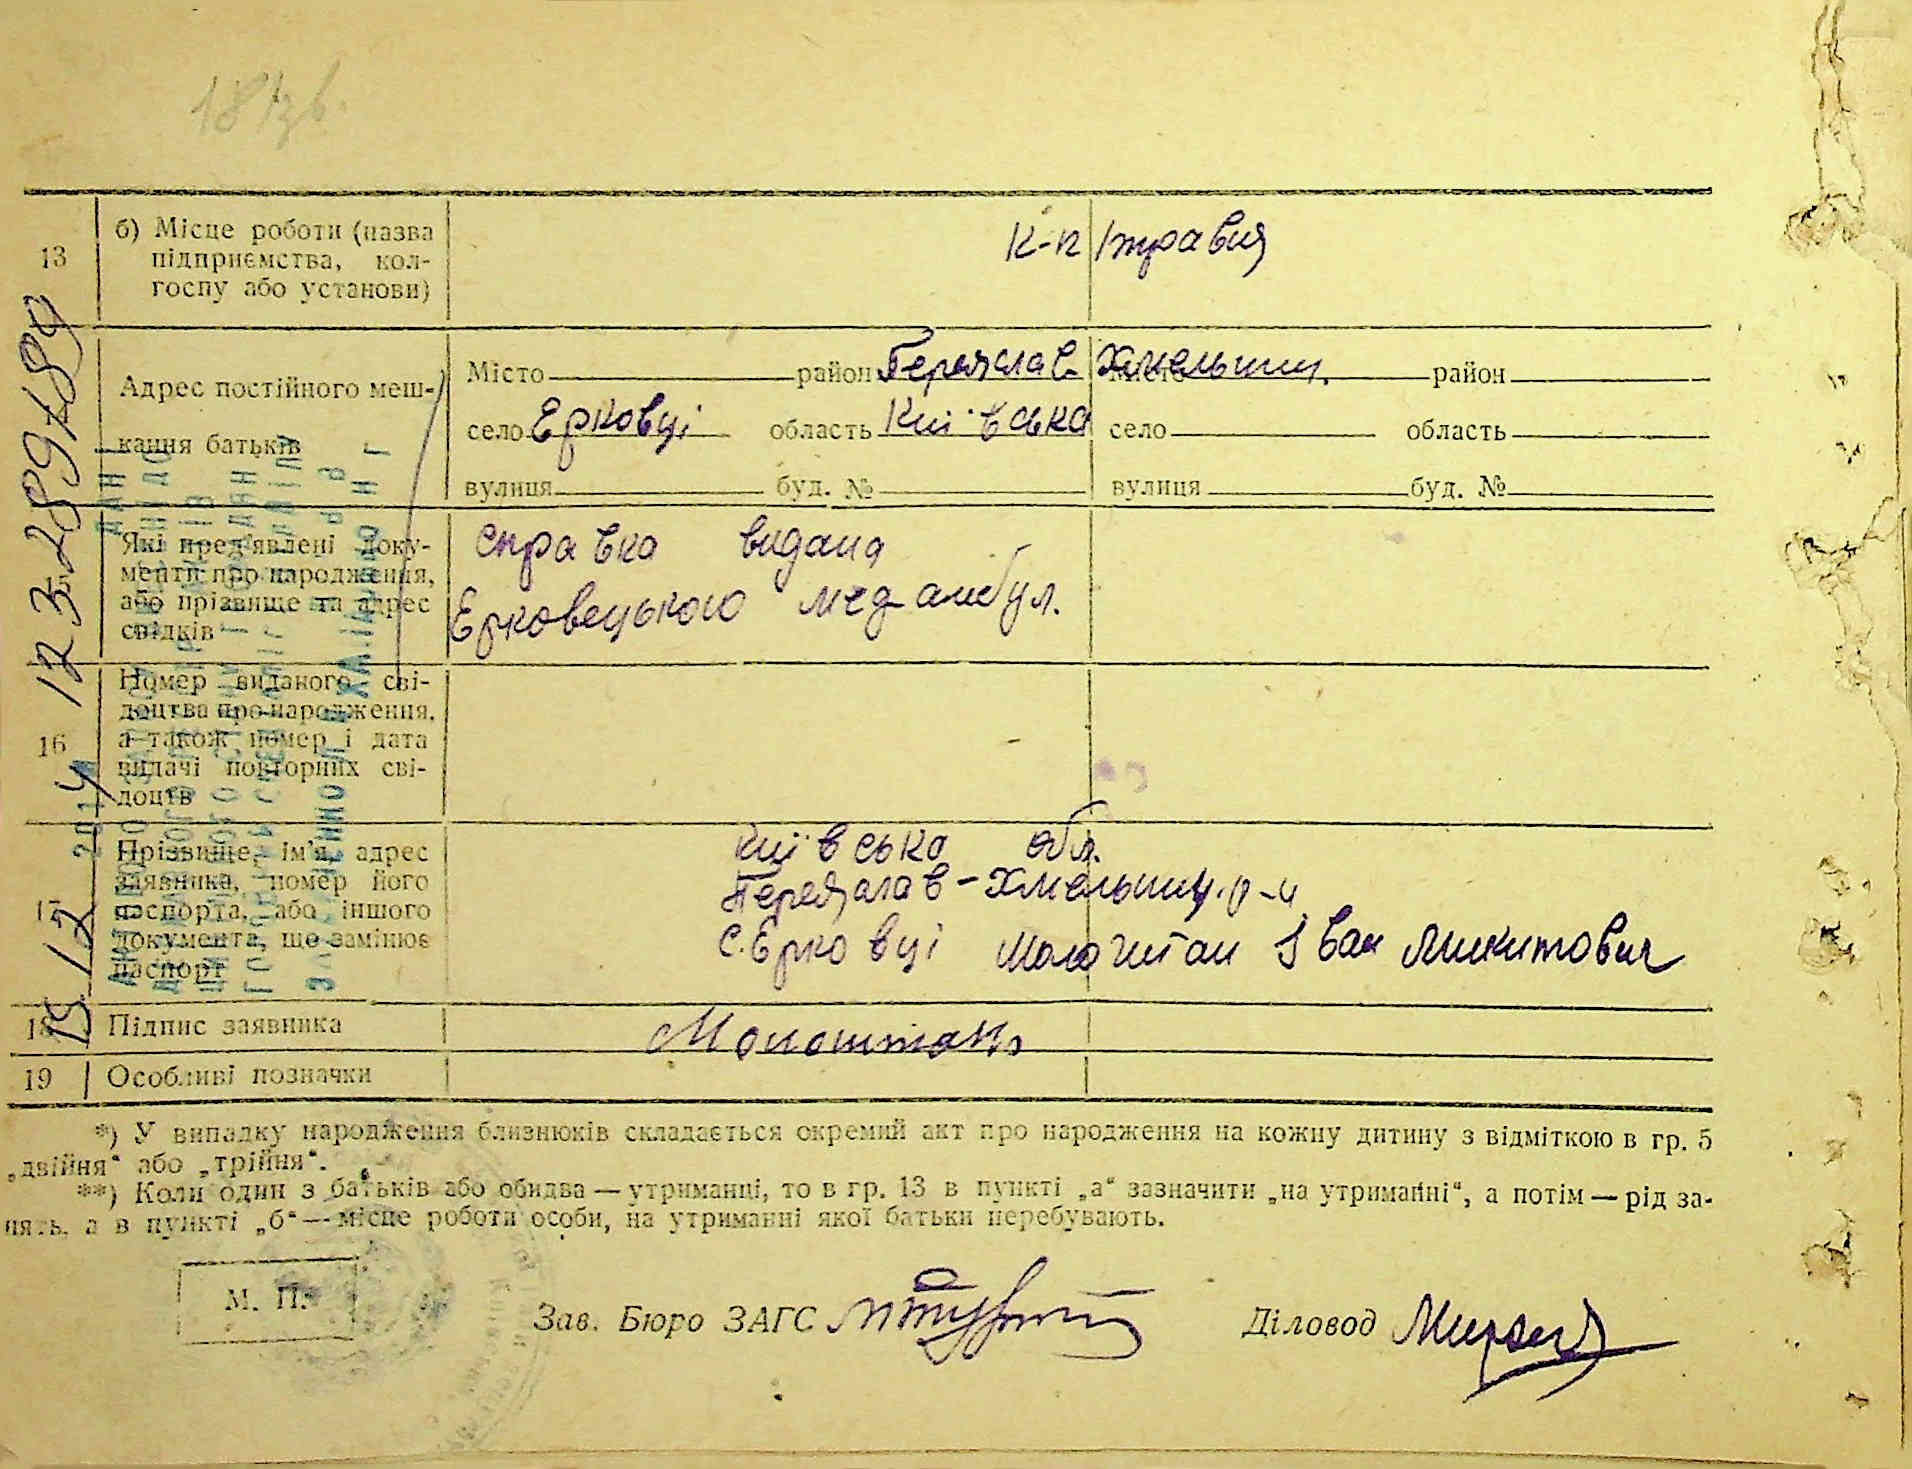 13
б) Місце роботи (назва
підприємства, кол-
госпу або установи)
К-п 1 травня
Адрес постійного меш-
кання батьків
Місто район Переяслав Хмельниц. місто район
село Ерковці область Київська село область
вулиця буд. № вулиця буд. №
Які пред'явлені доку-
менти про народження,
або прізвище та адрес
свідків
справка видана
Ерковецькою мед амбул.
16
Номер виданого сві-
доцтва про народження,
а також номер і дата
видачі повторних сві-
доцтв
17
Прізвище, ім'я, адрес
заявника, номер його
паспорта, або іншого
документа, що замінює
паспорт
Київська обл.
Переяслав-Хмельниц. р-н
с. Ерковці Молоштан Іван Микитович
18 Підпис заявника Молоштан
19 Особливі позначки
*) У випадку народження близнюків складається окремий акт про народження на кожну дитину з відміткою в гр. 5
„двійня“ або „трійня“.
**) Коли один з батьків або обидва — утриманці, то в гр. 13 в пункті „а“ зазначити „на утриманні“, а потім — рід за-
нять, а в пункті „б“ — місце роботи особи, на утриманні якої батьки перебувають.
М. П.
Зав. Бюро ЗАГС
Діловод